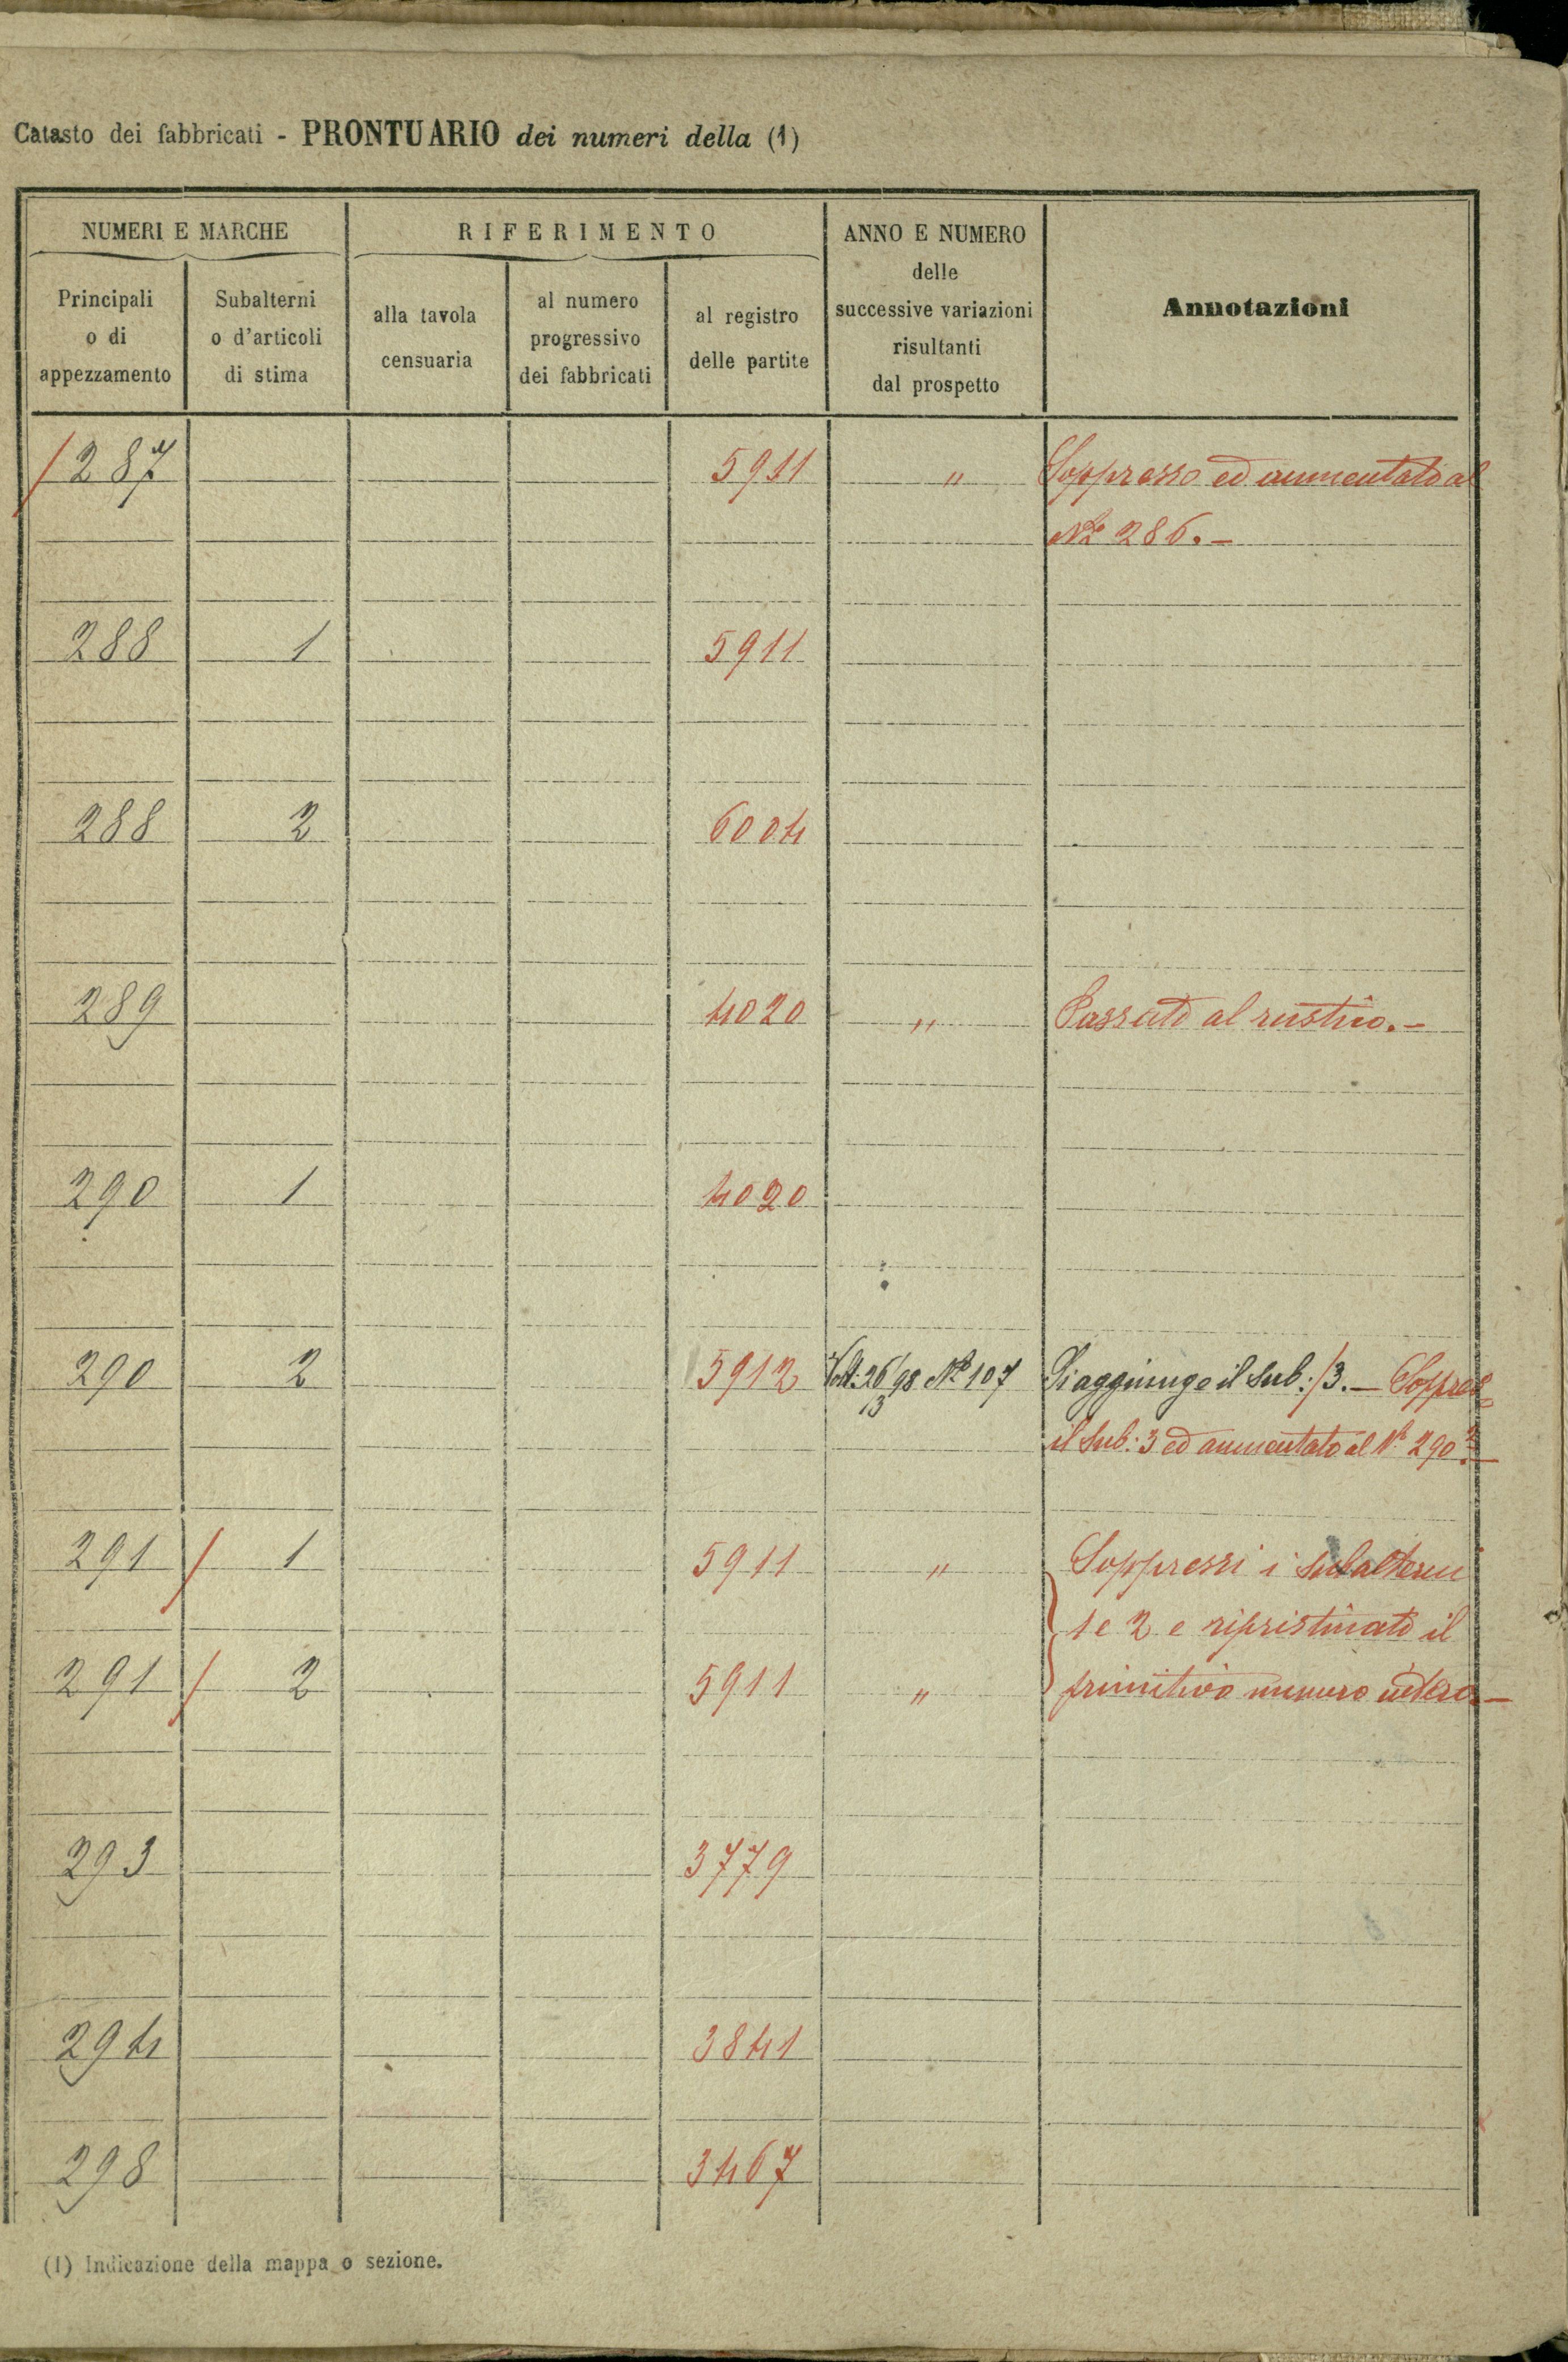 Catasto dei fabbricati - PRONTUARIO dei numeri della (1)
NUMERI E MARCHE
RIFERIMENTO
ANNO E NUMERO
delle
successive variazioni
risultanti
dal prospetto
Annotazioni
Principali
o di
appezzamento
Subalterni
o d'articoli
di stima
alla tavola
censuaria
al numero
progressivo
dei fabbricati
al registro
delle partite
/ 287 5911 " Soppresso ed aumentato al
No 286.-
288 1 5911
288 2 6004
289 4020 " Passato al rustico.-
290 1 4020
290 2 5912 26/3 98 No 107 Si aggiunge il Sub: /3.- Soppres=
il Sub: 3 ed aumentato al No 290 2.-
291 / 1 5911 " Soppressi i subalterni
1 e 2 e ripristinato il
291 / 2 5911 " primitivo numero intero.-
293 3779
294 3841
298 3467
(1) Indicazione della mappa o sezione.